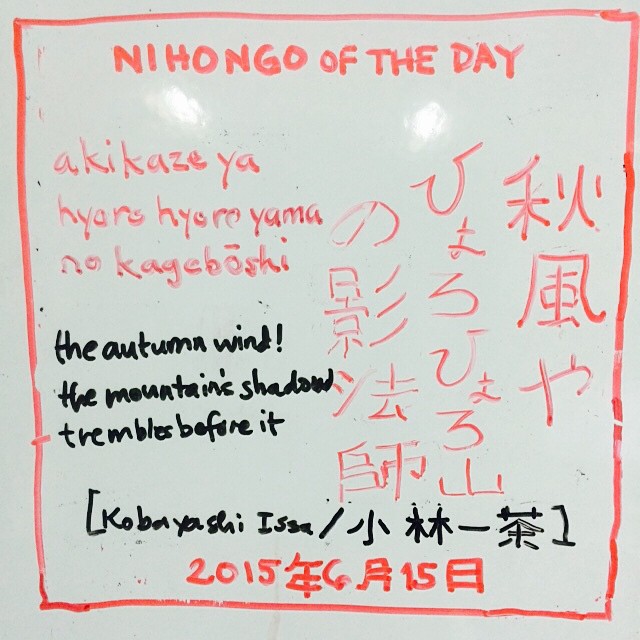 NIHONGO OF THE DAY
akikaze ya
hyoro hyoro yama
no kagebōshi
秋風や
ひょろひょろ山
の影法師
the autumn wind!
the mountain's shadow
trembles before it
[Kobayashi Issa / 小林一茶]
2015年6月15日